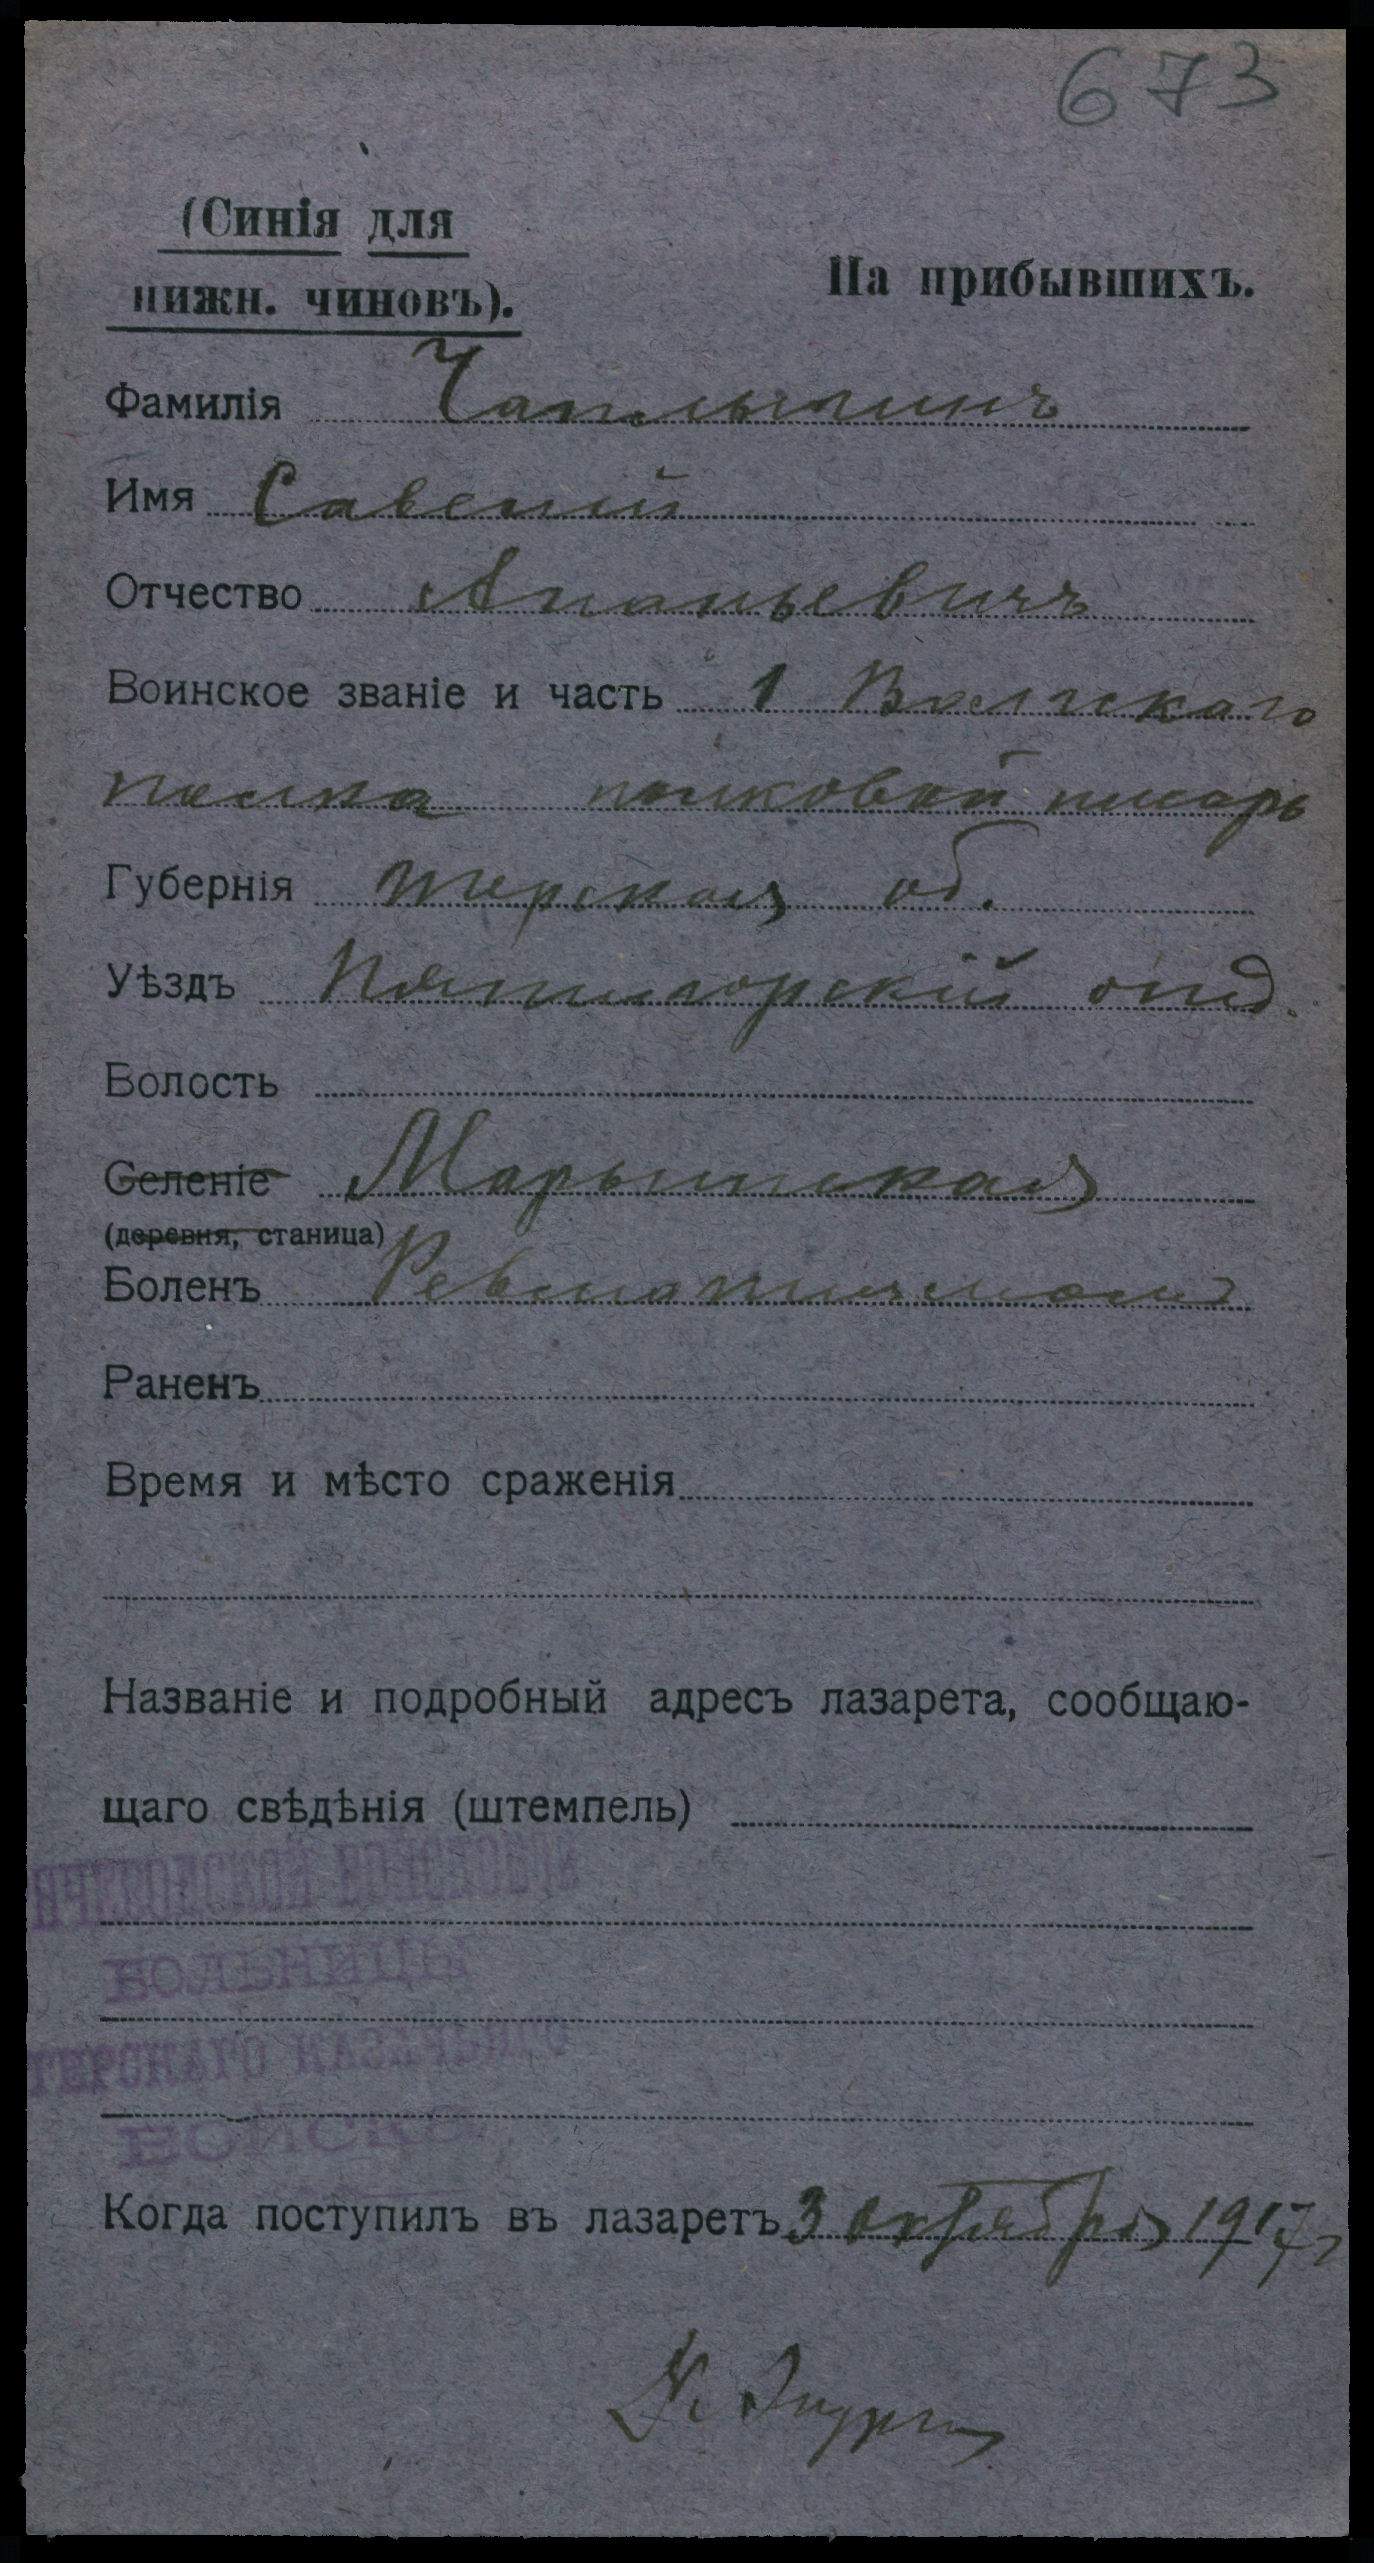 673
(Синія для
нижн. чиновъ).
На прибывшихъ.
Фамилія Чаплыгинъ
Имя Савелий
Отчество Ананьевичъ
Воинское званіе и часть 1 Волгскаго
полка полковой писарь
Губернія Терская об.
Уѣздъ Пятигорскій отд.
Волость
Селеніе Марьинская
(деревня, станица)
Боленъ Ревматизмомъ
Раненъ
Время и мѣсто сраженія
Названіе и подробный адресъ лазарета, сообщаю-
щаго свѣдѣнія (штемпель)
ВОЙСКОВОЙ
БОЛЬНИЦЫ
ТЕРСКАГО КАЗАЧЬЯГО
ВОЙСКА
Когда поступилъ въ лазаретъ 3 октября 1917 г